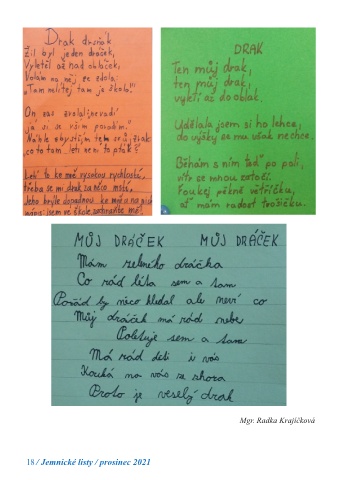 Drak dvořák
Žil byl jeden dráček,
Vyletěl až nad obláček,
Volám na něj ze zdola:
"Tam neliťej tam je škola."
On zas
já si se vším poradím."
co to tam letí není to pták?
Letí to ke mě vysokou rychlostí,
třeba se mi drak za něco mstí,
Jeho brýle dopadnou ke mě a na
jsem ve škole, zachraňte mě.
DRAK
Ten můj drak,
ten můj drak,
vyletí až do oblak.
Udělala jsem si ho lehce,
do výšky se mu však nechce.
Běhám s ním teď po poli,
vítr se mnou zatočí.
Foukej pěkně větříčku,
ať mám radost trošičku.
MŮJ DRÁČEK MŮJ DRÁČEK
Mám zeleného dráčka
Co rád létá sem a tam
Pořád by něco hledal ale neví co
Můj dráček má rád nebe
Poletuje sem a tam
Má rád děti i vás
Kouká na vás ze shora
Proto je veselý drak
Mgr. Radka Krajíčková
18 / Jemnické listy / prosinec 2021